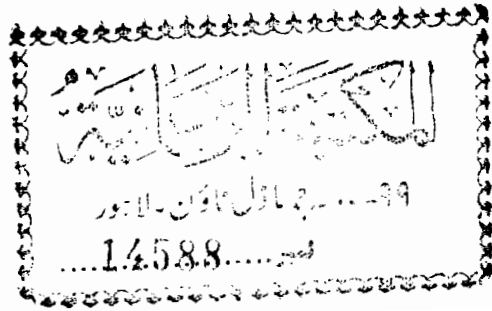 المكتبة الرحمانية
۹۹..... جے ماڈل ٹاؤن - لاہور
نمبر.....14588....